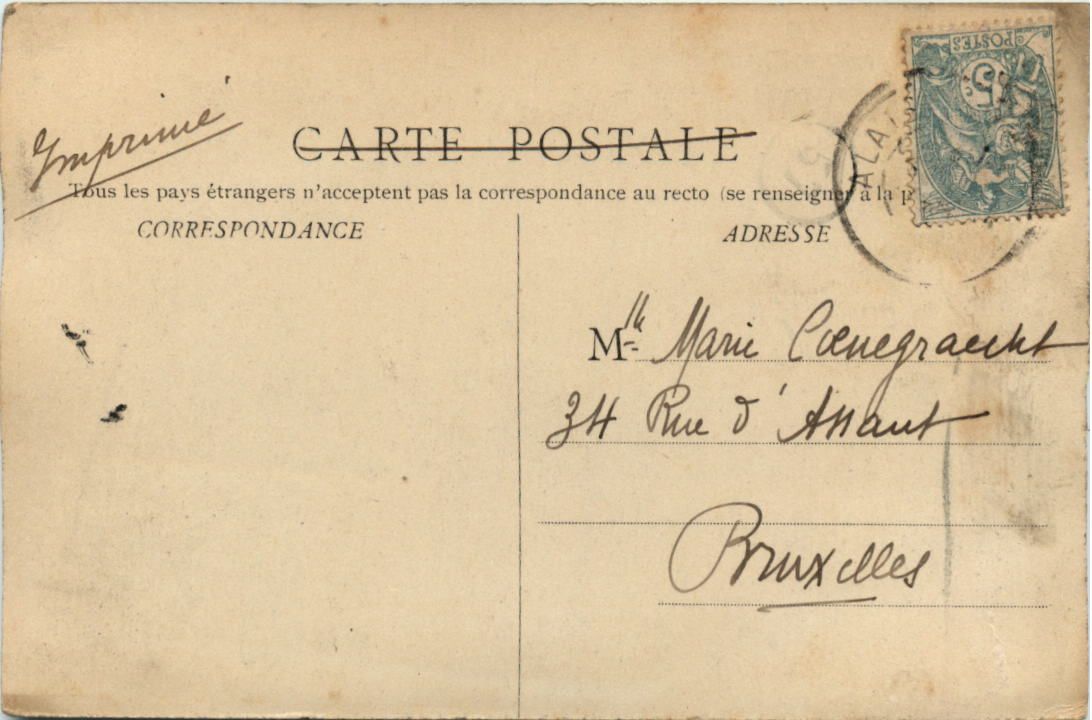 Imprimé
CARTE POSTALE
Tous les pays étrangers n'acceptent pas la correspondance au recto (se renseigner à la p
CORRESPONDANCE
ADRESSE
POSTES
5
ALA
Mlle Marie Coenegracht
34 Rue d'Assaut
Bruxelles